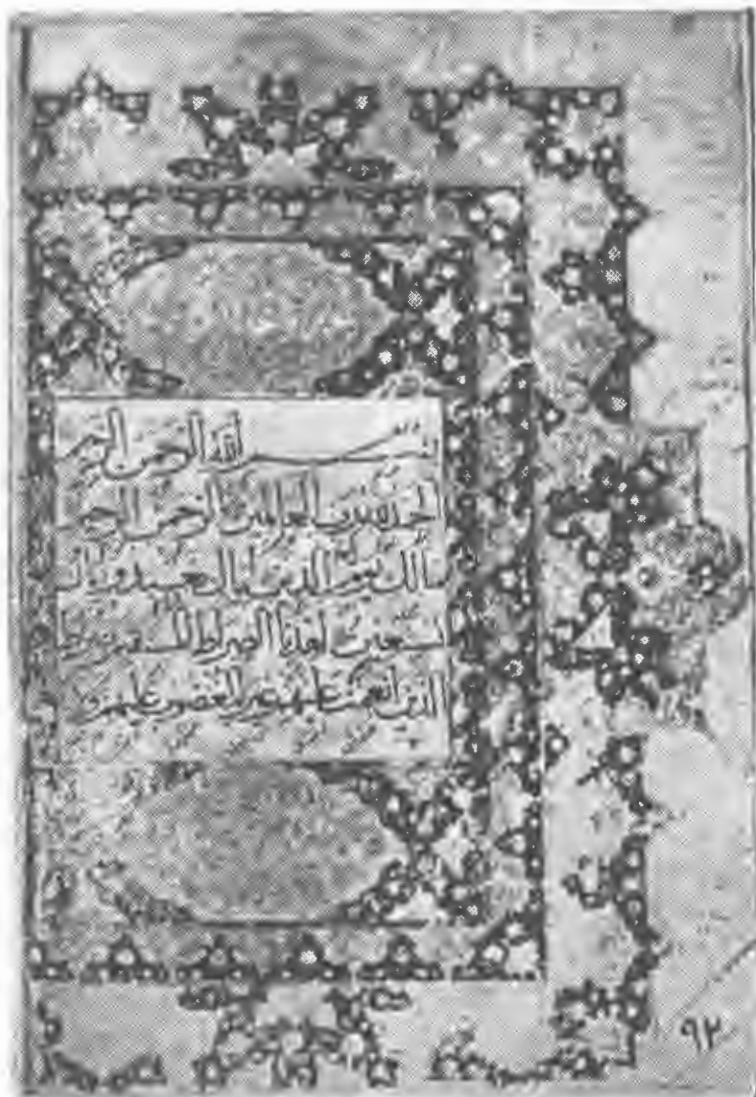 بسم الله الرحمن الرحيم
الحمد لله رب العالمين الرحمن الرحيم
مالك يوم الدين اياك نعبد واياك
نستعين اهدنا الصراط المستقيم صراط
الذين انعمت عليهم غير المغضوب عليهم و
٩٢